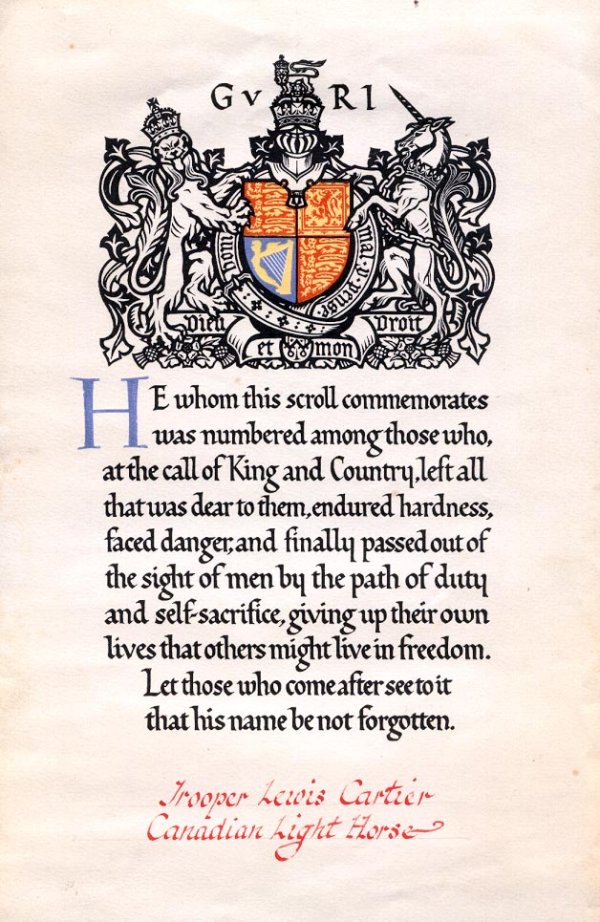 G V RI
Honi soit qui mal y pense
Dieu et mon Droit
HE whom this scroll commemorates
was numbered among those who,
at the call of King and Country, left all
that was dear to them, endured hardness,
faced danger, and finally passed out of
the sight of men by the path of duty
and self-sacrifice, giving up their own
lives that others might live in freedom.
Let those who come after see to it
that his name be not forgotten.
Trooper Lewis Cartier
Canadian Light Horse